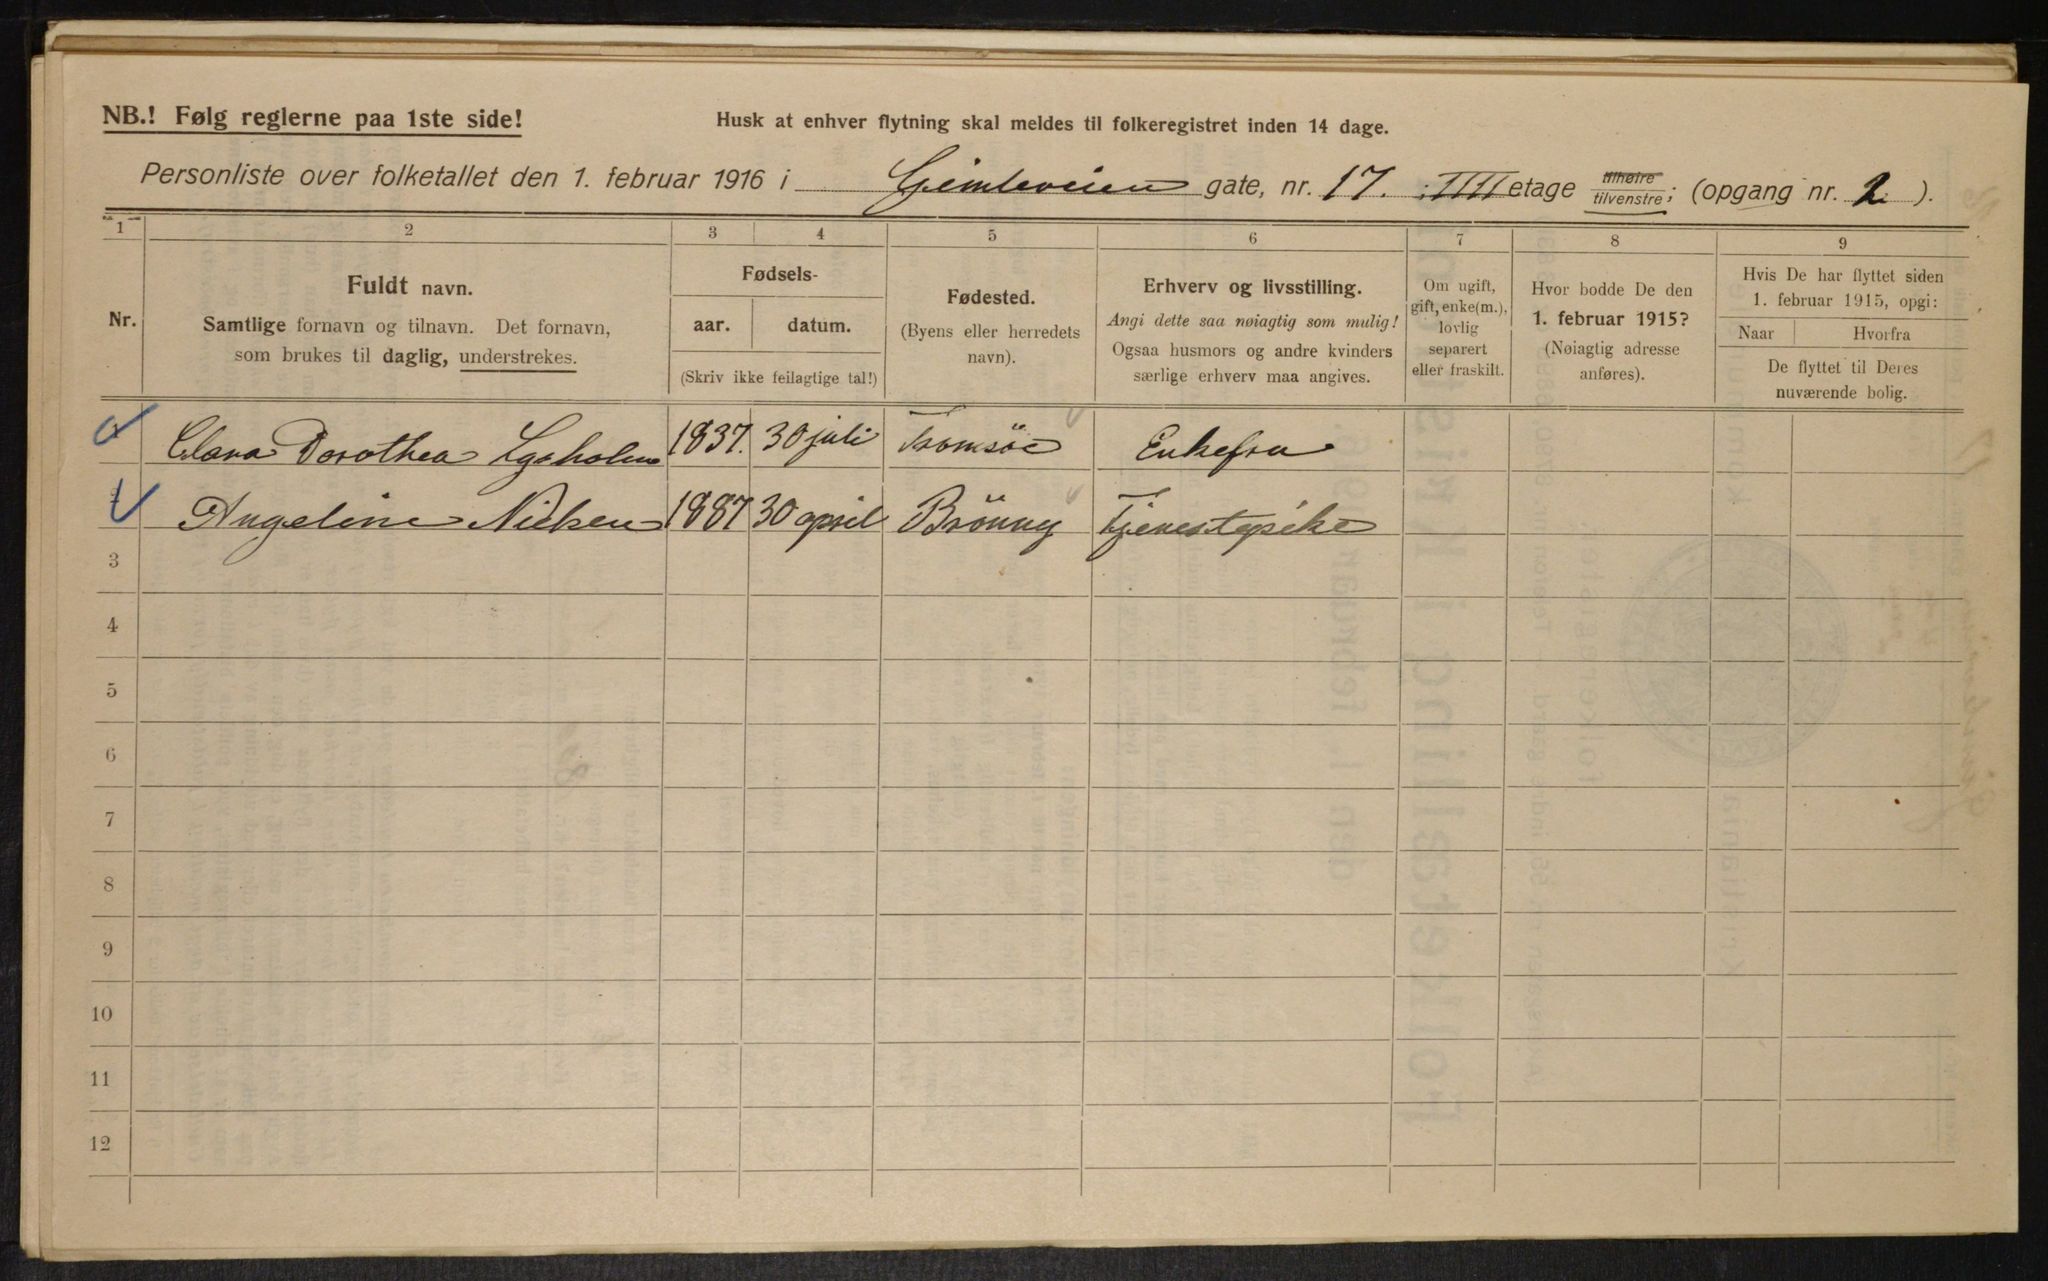 NB.! Følg reglerne paa 1ste side!
Husk at enhver flytning skal meldes til folkeregistret inden 14 dage.
Personliste over folketallet den 1. februar 1916 i Gimleveien gate, nr. 17. IIII etage tilhøire tilvenstre; (opgang nr. 2).
1 2 3 4 5 6 7 8 9
Nr.
Fuldt navn.
Samtlige fornavn og tilnavn. Det fornavn,
som brukes til daglig, understrekes.
Fødsels-
aar. datum.
(Skriv ikke feilagtige tal!)
Fødested.
(Byens eller herredets
navn).
Erhverv og livsstilling.
Angi dette saa nøiagtig som mulig!
Ogsaa husmors og andre kvinders
særlige erhverv maa angives.
Om ugift,
gift, enke(m.),
lovlig
separert
eller fraskilt.
Hvor bodde De den
1. februar 1915?
(Nøiagtig adresse
anføres).
Hvis De har flyttet siden
1. februar 1915, opgi:
Naar Hvorfra
De flyttet til Deres
nuværende bolig.
Clara Dorothea Lysholm 1837. 30 juli Tromsöe Enkefru
Angeline Nielsen 1887 30 april Brönny Tjenestepike
3
4
5
6
7
8
9
10
11
12